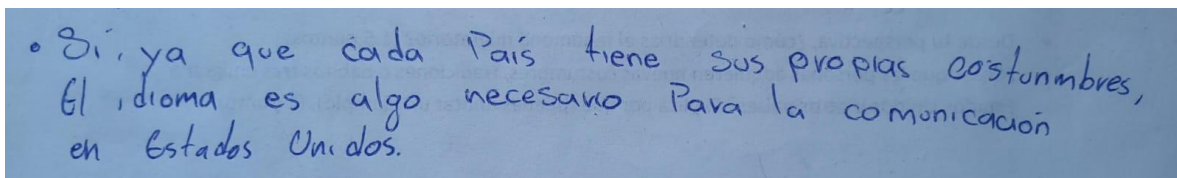 • Si, ya que cada País tiene sus propias costunmbres,
El idioma es algo necesario Para la comunicación
en Estados Unidos.